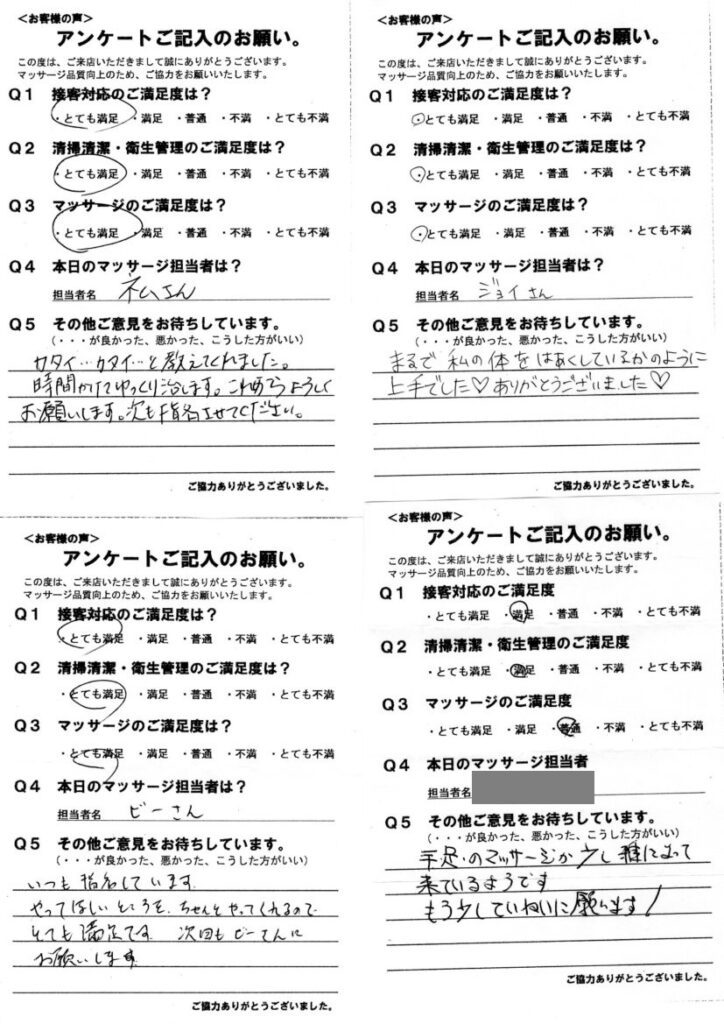 ＜お客様の声＞
アンケートご記入のお願い。
この度は、ご来店いただきまして誠にありがとうございます。
マッサージ品質向上のため、ご協力をお願いいたします。
Q1 接客対応のご満足度は？
・とても満足 ・満足 ・普通 ・不満 ・とても不満
Q2 清掃清潔・衛生管理のご満足度は？
・とても満足 ・満足 ・普通 ・不満 ・とても不満
Q3 マッサージのご満足度は？
・とても満足 ・満足 ・普通 ・不満 ・とても不満
Q4 本日のマッサージ担当者は？
担当者名 ネムさん
Q5 その他ご意見をお待ちしています。
（・・・が良かった、悪かった、こうした方がいい）
カタイ…カタイ…と教えてくれました。
時間かけてゆっくり治します。これからもよろしく
お願いします。次も指名させてください。
ご協力ありがとうございました。
＜お客様の声＞
アンケートご記入のお願い。
この度は、ご来店いただきまして誠にありがとうございます。
マッサージ品質向上のため、ご協力をお願いいたします。
Q1 接客対応のご満足度は？
・とても満足 ・満足 ・普通 ・不満 ・とても不満
Q2 清掃清潔・衛生管理のご満足度は？
・とても満足 ・満足 ・普通 ・不満 ・とても不満
Q3 マッサージのご満足度は？
・とても満足 ・満足 ・普通 ・不満 ・とても不満
Q4 本日のマッサージ担当者は？
担当者名 ジョイさん
Q5 その他ご意見をお待ちしています。
（・・・が良かった、悪かった、こうした方がいい）
まるで私の体をはあくしているかのように
上手でした♡ありがとうございました♡
ご協力ありがとうございました。
＜お客様の声＞
アンケートご記入のお願い。
この度は、ご来店いただきまして誠にありがとうございます。
マッサージ品質向上のため、ご協力をお願いいたします。
Q1 接客対応のご満足度は？
・とても満足 ・満足 ・普通 ・不満 ・とても不満
Q2 清掃清潔・衛生管理のご満足度は？
・とても満足 ・満足 ・普通 ・不満 ・とても不満
Q3 マッサージのご満足度は？
・とても満足 ・満足 ・普通 ・不満 ・とても不満
Q4 本日のマッサージ担当者は？
担当者名 ビーさん
Q5 その他ご意見をお待ちしています。
（・・・が良かった、悪かった、こうした方がいい）
いつも指名しています
やってほしいところを、ちゃんとやってくれるので
とても満足です 次回もビーさんに
お願いします
ご協力ありがとうございました。
＜お客様の声＞
アンケートご記入のお願い。
この度は、ご来店いただきまして誠にありがとうございます。
マッサージ品質向上のため、ご協力をお願いいたします。
Q1 接客対応のご満足度
・とても満足 ・満足 ・普通 ・不満 ・とても不満
Q2 清掃清潔・衛生管理のご満足度
・とても満足 ・満足 ・普通 ・不満 ・とても不満
Q3 マッサージのご満足度
・とても満足 ・満足 ・普通 ・不満 ・とても不満
Q4 本日のマッサージ担当者
担当者名
Q5 その他ご意見をお待ちしています。
（・・・が良かった、悪かった、こうした方がいい）
手足のマッサージが少し雑になって
来ているようです
もう少していねいに願います！
ご協力ありがとうございました。